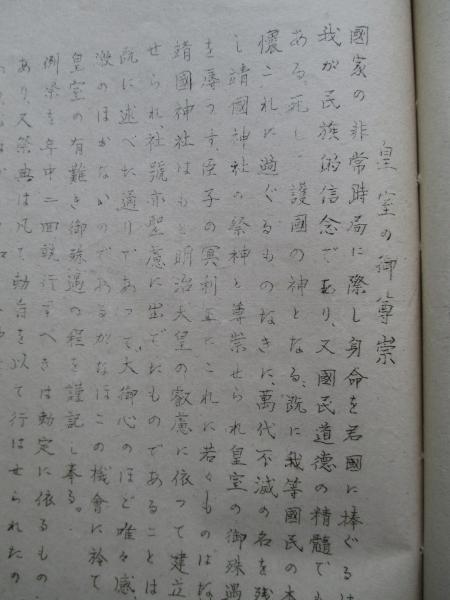 皇室の御尊崇
國家の非常時局に際し身命を君國に捧ぐるは
我が民族的信念であり、又國民道徳の精髓でも
ある死して護國の神となる、既に我等國民の本
懷これに過ぐるものなきに、萬代不滅の名を残
し靖國神社の祭神と尊崇せられ皇室の御殊遇
を辱うす、臣子の冥利正にこれに若くものはな
靖國神社はもと明治天皇の叡慮に依つて建立
せられ、社號亦聖慮に出でたものであることは
既に述べた通りであつて、大御心のほど唯々感
激のほかないのであるがなほこの機會に於て
皇室の有難き御殊遇の程を謹記し奉る。
例祭を年中二回執行すべきは勅定に依るもの
あり、又祭典は凡て勅旨を以て行はせられたの